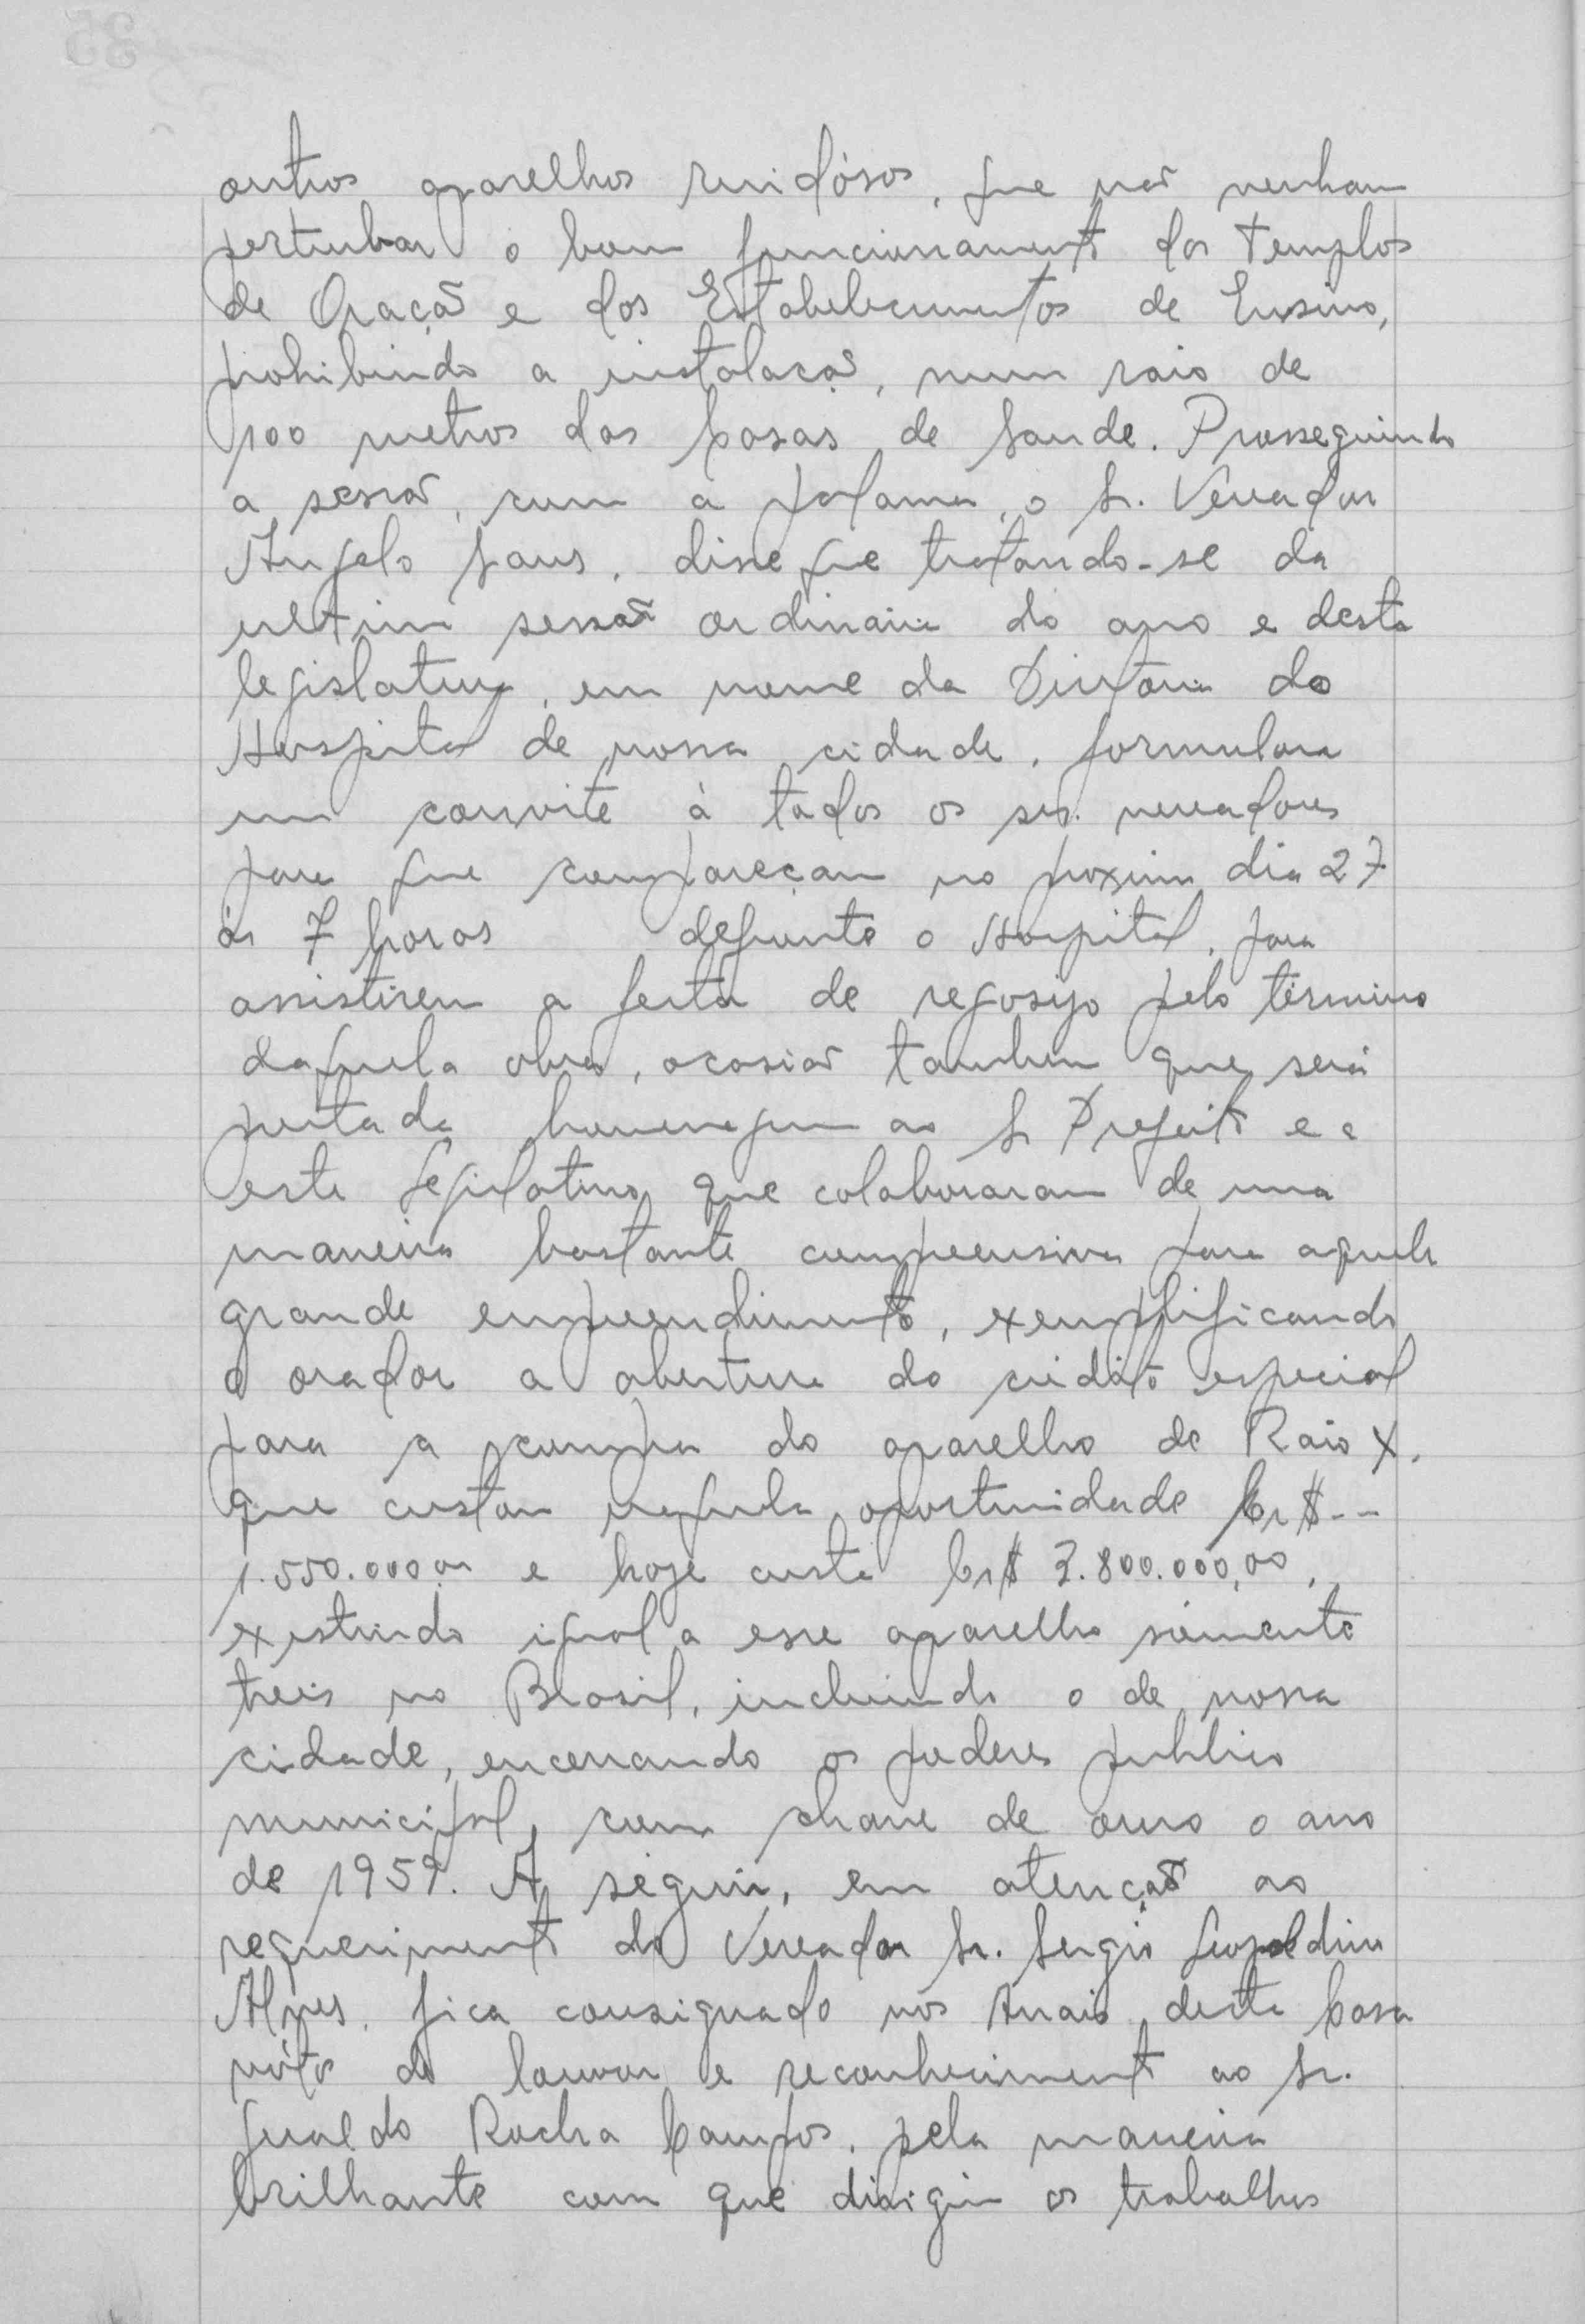 outros aparelhos ruidósos, que não venham
perturbar o bom funcionamento dos templos
de Oração e dos Estabelecimentos de Ensino,
prohibindo a instalação, num raio de
100 metros das Casas de Saude. Prosseguindo
a sessão, com a palavra, o Sr. Vereador
Angelo Sans, disse que tratando-se da
ultima sessão ordinaria do ano e desta
legislatura, em nome da Diretoria do
Hospital de nossa cidade, formulava
um convite à todos os srs. vereadores
para que compareçam no proximo dia 27
ás 7 horas defronte o Hospital, para
assistirem a festa de regosijo pelo término
daquela obra, ocasião tambem que será
prestada homenagem ao Sr Prefeito e a
este Legislativo que colaboraram de uma
maneira bastante compreensiva para aquele
grande empreendimento, exemplificando
o orador a abertura do crédito especial
para a compra do aparelho de Raio X,
que custou naquela oportunidade Cr$--
1.550.000,00 e hoje custa Cr$ 3.800.000,00,
existindo igual a esse aparelho sómente
treis no Brasil, incluindo o de nossa
cidade, encerrando os poderes publico
municipal, com chave de ouro o ano
de 1959. A seguir, em atenção ao
requerimento do Vereador Sr. Sergio Leopoldino
Alves, fica consignado nos Anais desta Casa
vóto de louvor e reconhecimento ao Sr.
Rocha Campos, pela maneira
brilhante com que dirigiu os trabalhos